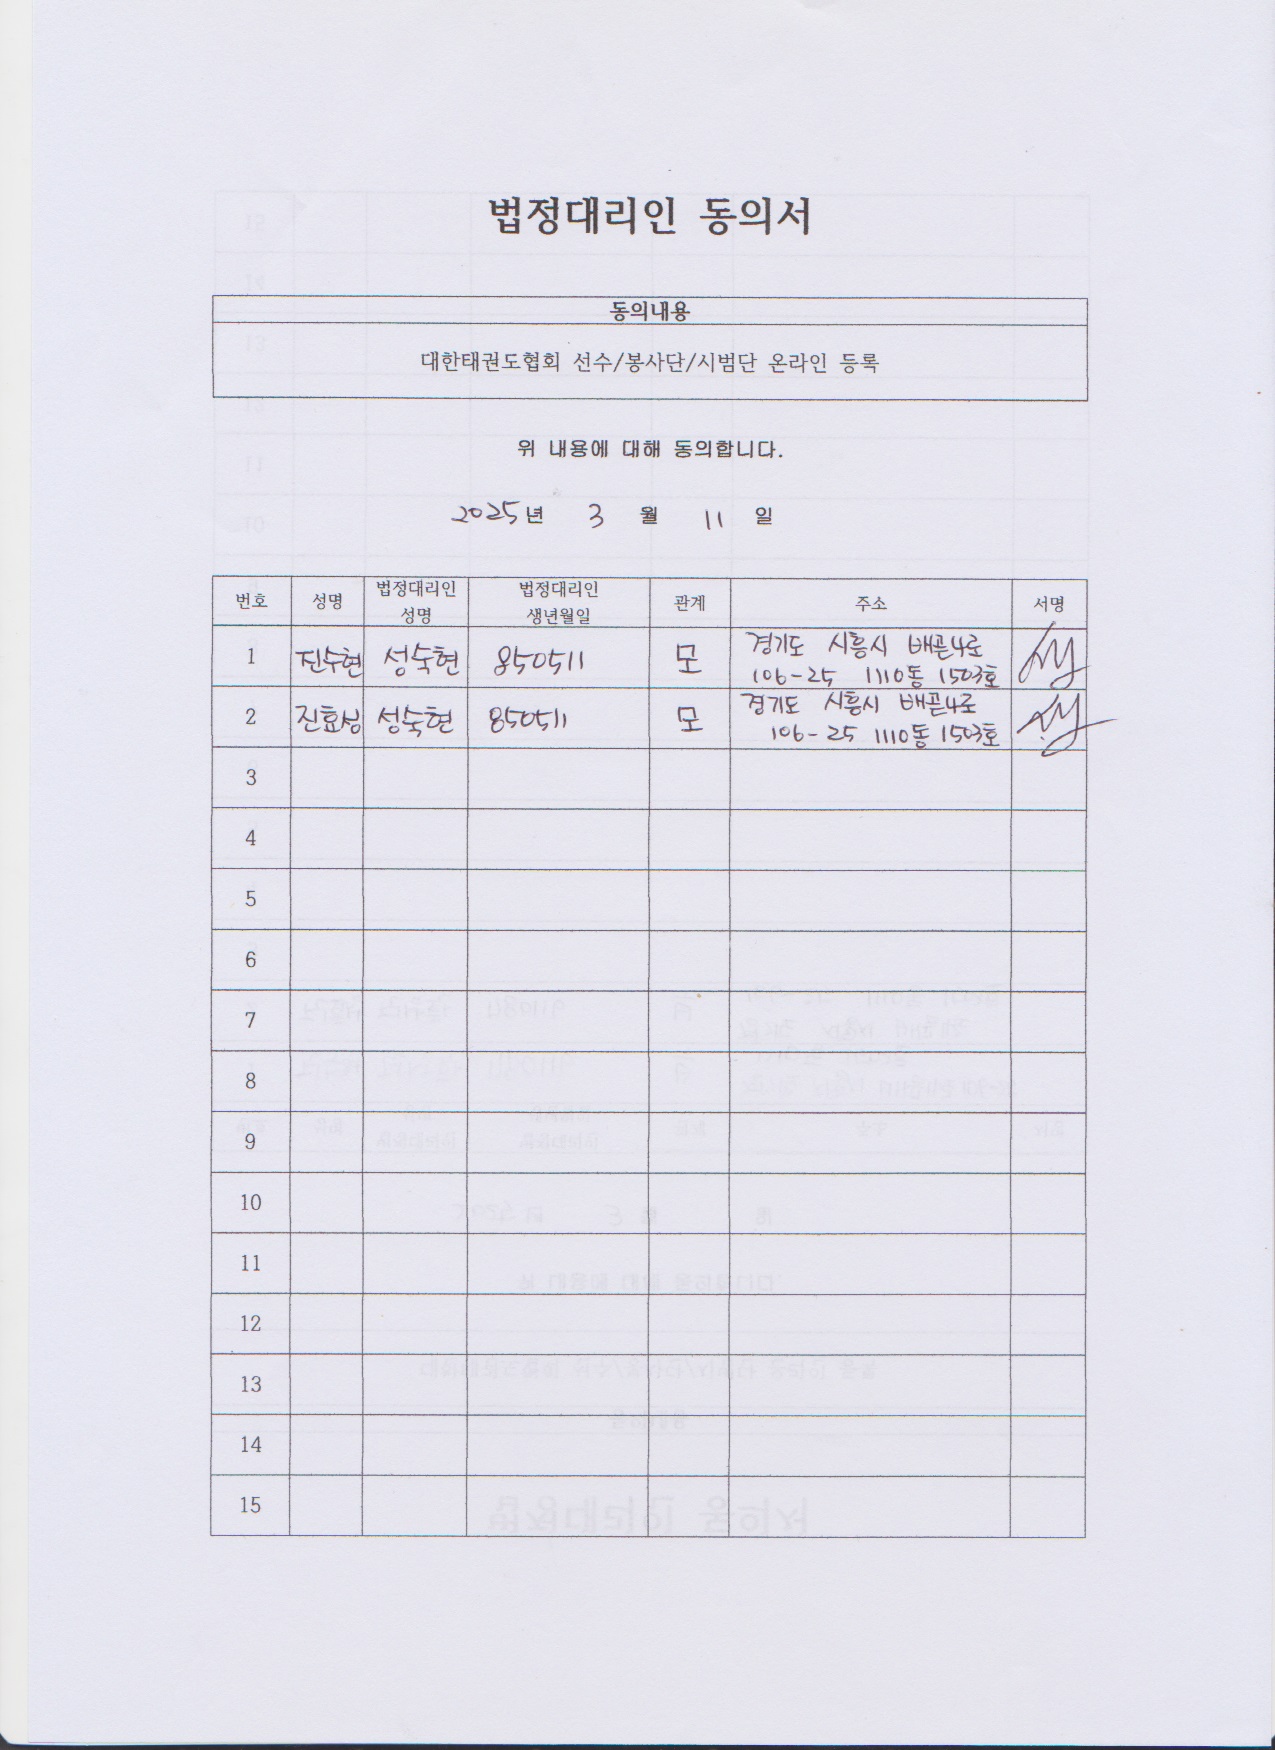 법정대리인 동의서
동의내용
대한태권도협회 선수/봉사단/시범단 온라인 등록
위 내용에 대해 동의합니다.
2025년 3 월 11 일
번호 성명 법정대리인 성명 법정대리인 생년월일 관계 주소 서명
1 진수현 성숙현 850511 모 경기도 시흥시 배곧4로
106-25 1110동 1503호
2 진효성 성숙현 850511 모 경기도 시흥시 배곧4로
106-25 1110동 1503호
3
4
5
6
7
8
9
10
11
12
13
14
15